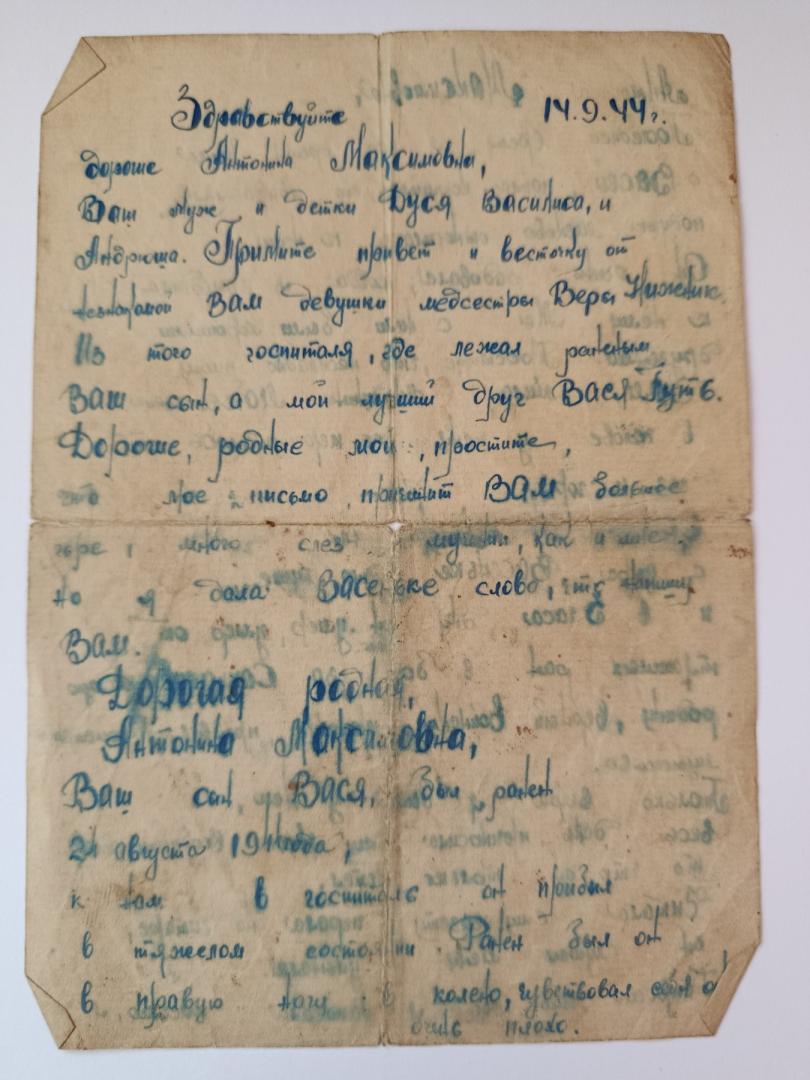 Здравствуйте 14.9.44г.
дорогие Антонина Максимовна,
Ваш муж и детки Дуся Василиса, и
Андрюша. Примите привет и весточку от
незнакомой Вам девушки медсестры Веры Нижник.
Из того госпиталя, где лежал раненым
Ваш сын, а мой лучший друг Вася Путь.
Дорогие, родные мои, простите,
что мое письмо, принесет ВАМ большое
горе, много слез и как и мне.
но я дала Васеньке слово, что напишу
Вам.
Дорогая родная,
Антонина Максимовна,
Ваш сын, Вася, был ранен
августа 1944 года,
к нам в госпиталь он прибыл
в тяжелом состоянии Ранен был он
в правую ногу в колено, чувствовал себя о
чень плохо.